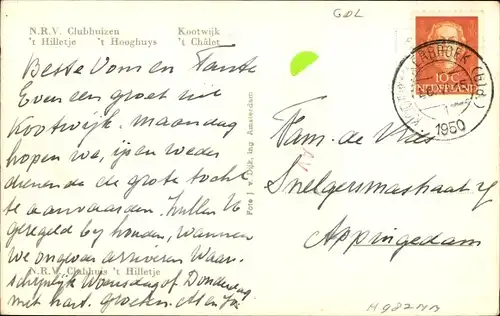 GDL
N.R.V. Clubhuizen Kootwijk
't Hilletje 't Hooghuys 't Châlet
Beste Oom en Tante
Even een groet uit
Kootwijk. Maandag
hopen we, ijs en weder
dienende de grote tocht
te aanvaarden. Zullen U
geregeld bij houden, wanneer
we ongeveer arriveren Waar-
schijnlijk Woensdag of Donderdag
met hart. groeten
N.R.V. Clubhuis 't Hilletje
Foto J. v. Dijk, Amsterdam
10 C
NEDERLAND
BROEK (Gld.)
1950
Fam. de Vries
Snelgersmastraat
Appingedam